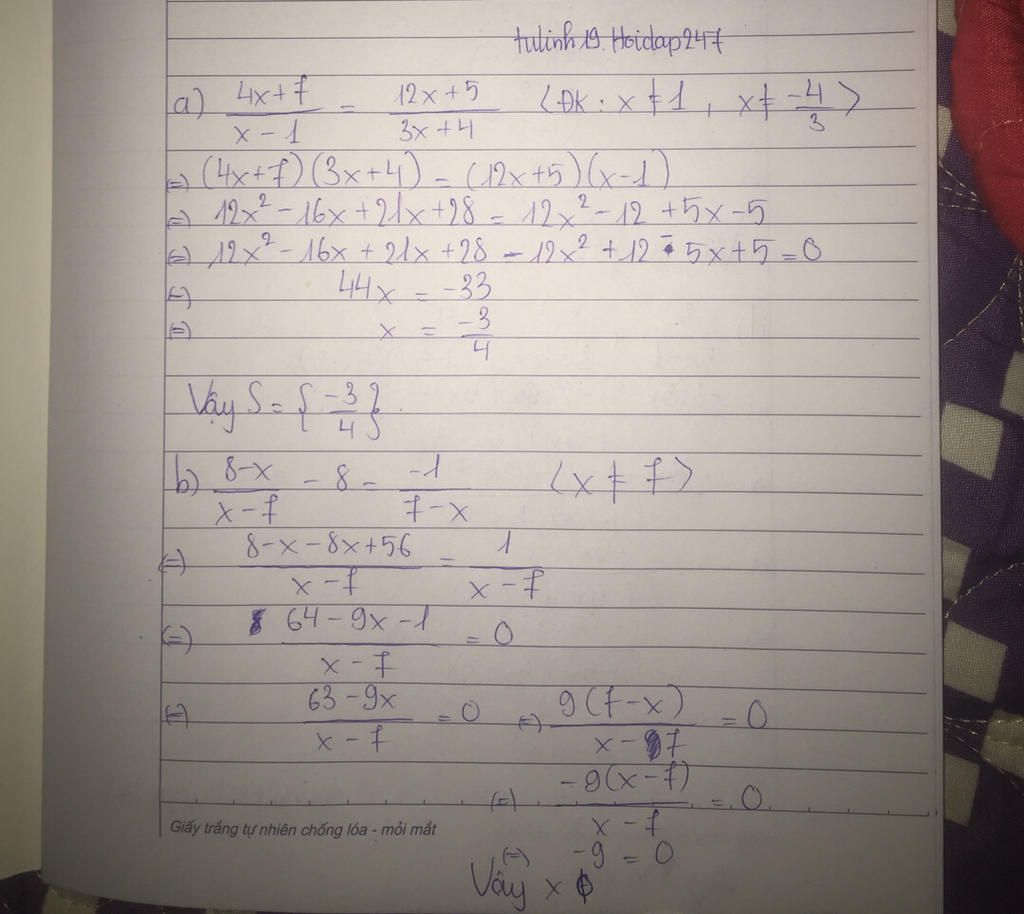 tulinh19.Hoidap247
a) \frac{4x+7}{x-1} = \frac{12x+5}{3x+4} < ĐK : x ≠ 1 , x ≠ \frac{-4}{3} >
(=) (4x+7)(3x+4) = (12x+5)(x-1)
(=) 12x² - 16x + 21x + 28 = 12x² - 12 + 5x - 5
(=) 12x² - 16x + 21x + 28 - 12x² + 12 - 5x + 5 = 0
(=) 44x = -33
(=) x = \frac{-3}{4}
Vậy S = { \frac{-3}{4} }.
b) \frac{8-x}{x-7} - 8 = \frac{-1}{7-x} < x ≠ 7 >
(=) \frac{8-x-8x+56}{x-7} = \frac{1}{x-7}
(=) \frac{64-9x-1}{x-7} = 0
(=) \frac{63-9x}{x-7} = 0 (=) \frac{9(7-x)}{x-7} = 0
(=) \frac{-9(x-7)}{x-7} = 0
Giấy trắng tự nhiên chống lóa - mỏi mắt
(=) -9 = 0
Vậy x